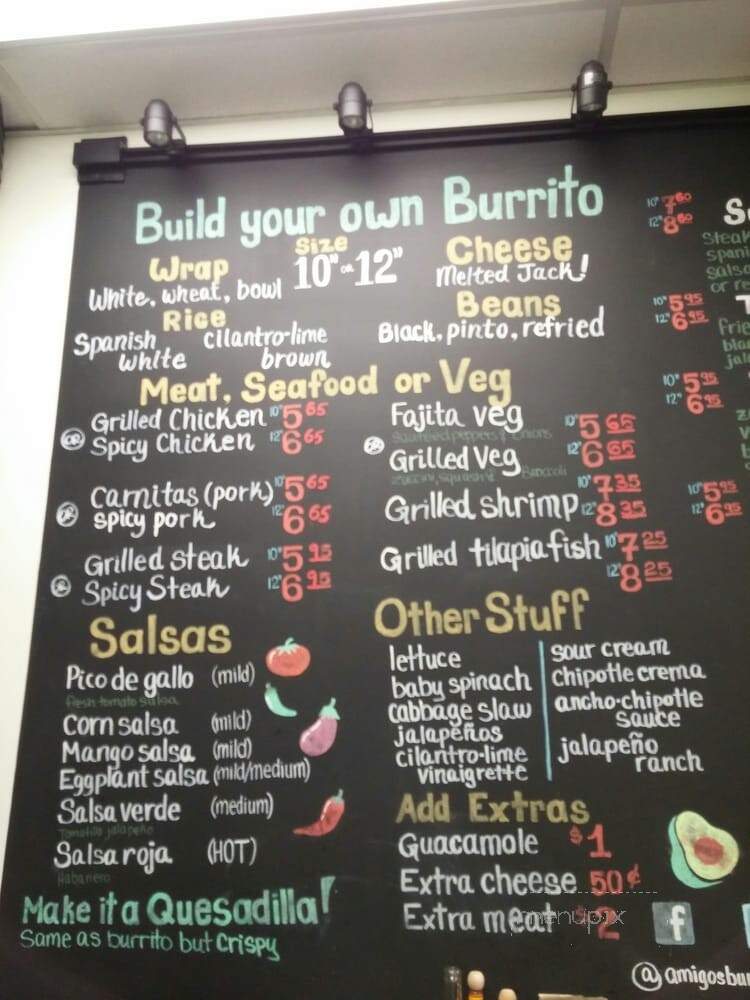 Build your own Burrito
Wrap
White, wheat, bowl
Size
10" or 12"
Cheese
Melted Jack!
Rice
Spanish cilantro-lime
white brown
Beans
Black, pinto, refried
Meat, Seafood or Veg
Grilled Chicken 10" 5 65
or Spicy Chicken 12" 6 65
Carnitas (pork) 10" 5 65
or spicy pork 12" 6 65
Grilled steak 10" 5 95
or Spicy Steak 12" 6 95
Fajita veg 10" 5 65
or Grilled Veg 12" 6 65
Broccoli
Grilled shrimp 10" 7 35
12" 8 35
Grilled tilapia fish 10" 7 25
12" 8 25
Salsas
Pico de gallo (mild)
fresh tomato salsa
Corn salsa (mild)
Mango salsa (mild)
Eggplant salsa (mild/medium)
Salsa verde (medium)
Tomatillo jalapeño
Salsa roja (HOT)
Habanero
Make it a Quesadilla!
Same as burrito but Crispy
Other Stuff
lettuce
baby spinach
cabbage slaw
jalapeños
cilantro-lime
vinaigrette
sour cream
chipotle crema
ancho-chipotle
sauce
jalapeño
ranch
Add Extras
Guacamole $1
Extra cheese 50¢
Extra meat $2
10" 7 60
12" 8 60
Steak
spani
salsa
or re
10" 5 95
12" 6 95
10" 5 95
12" 6 95
10" 5 95
12" 6 95
f
@amigosbu
menupix